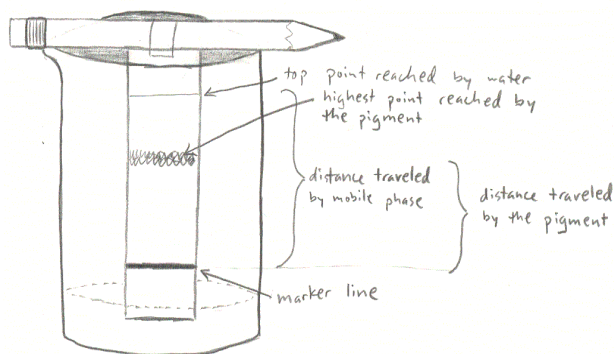 top point reached by water
highest point reached by
the pigment
distance traveled
by mobile phase
distance traveled
by the pigment
marker line